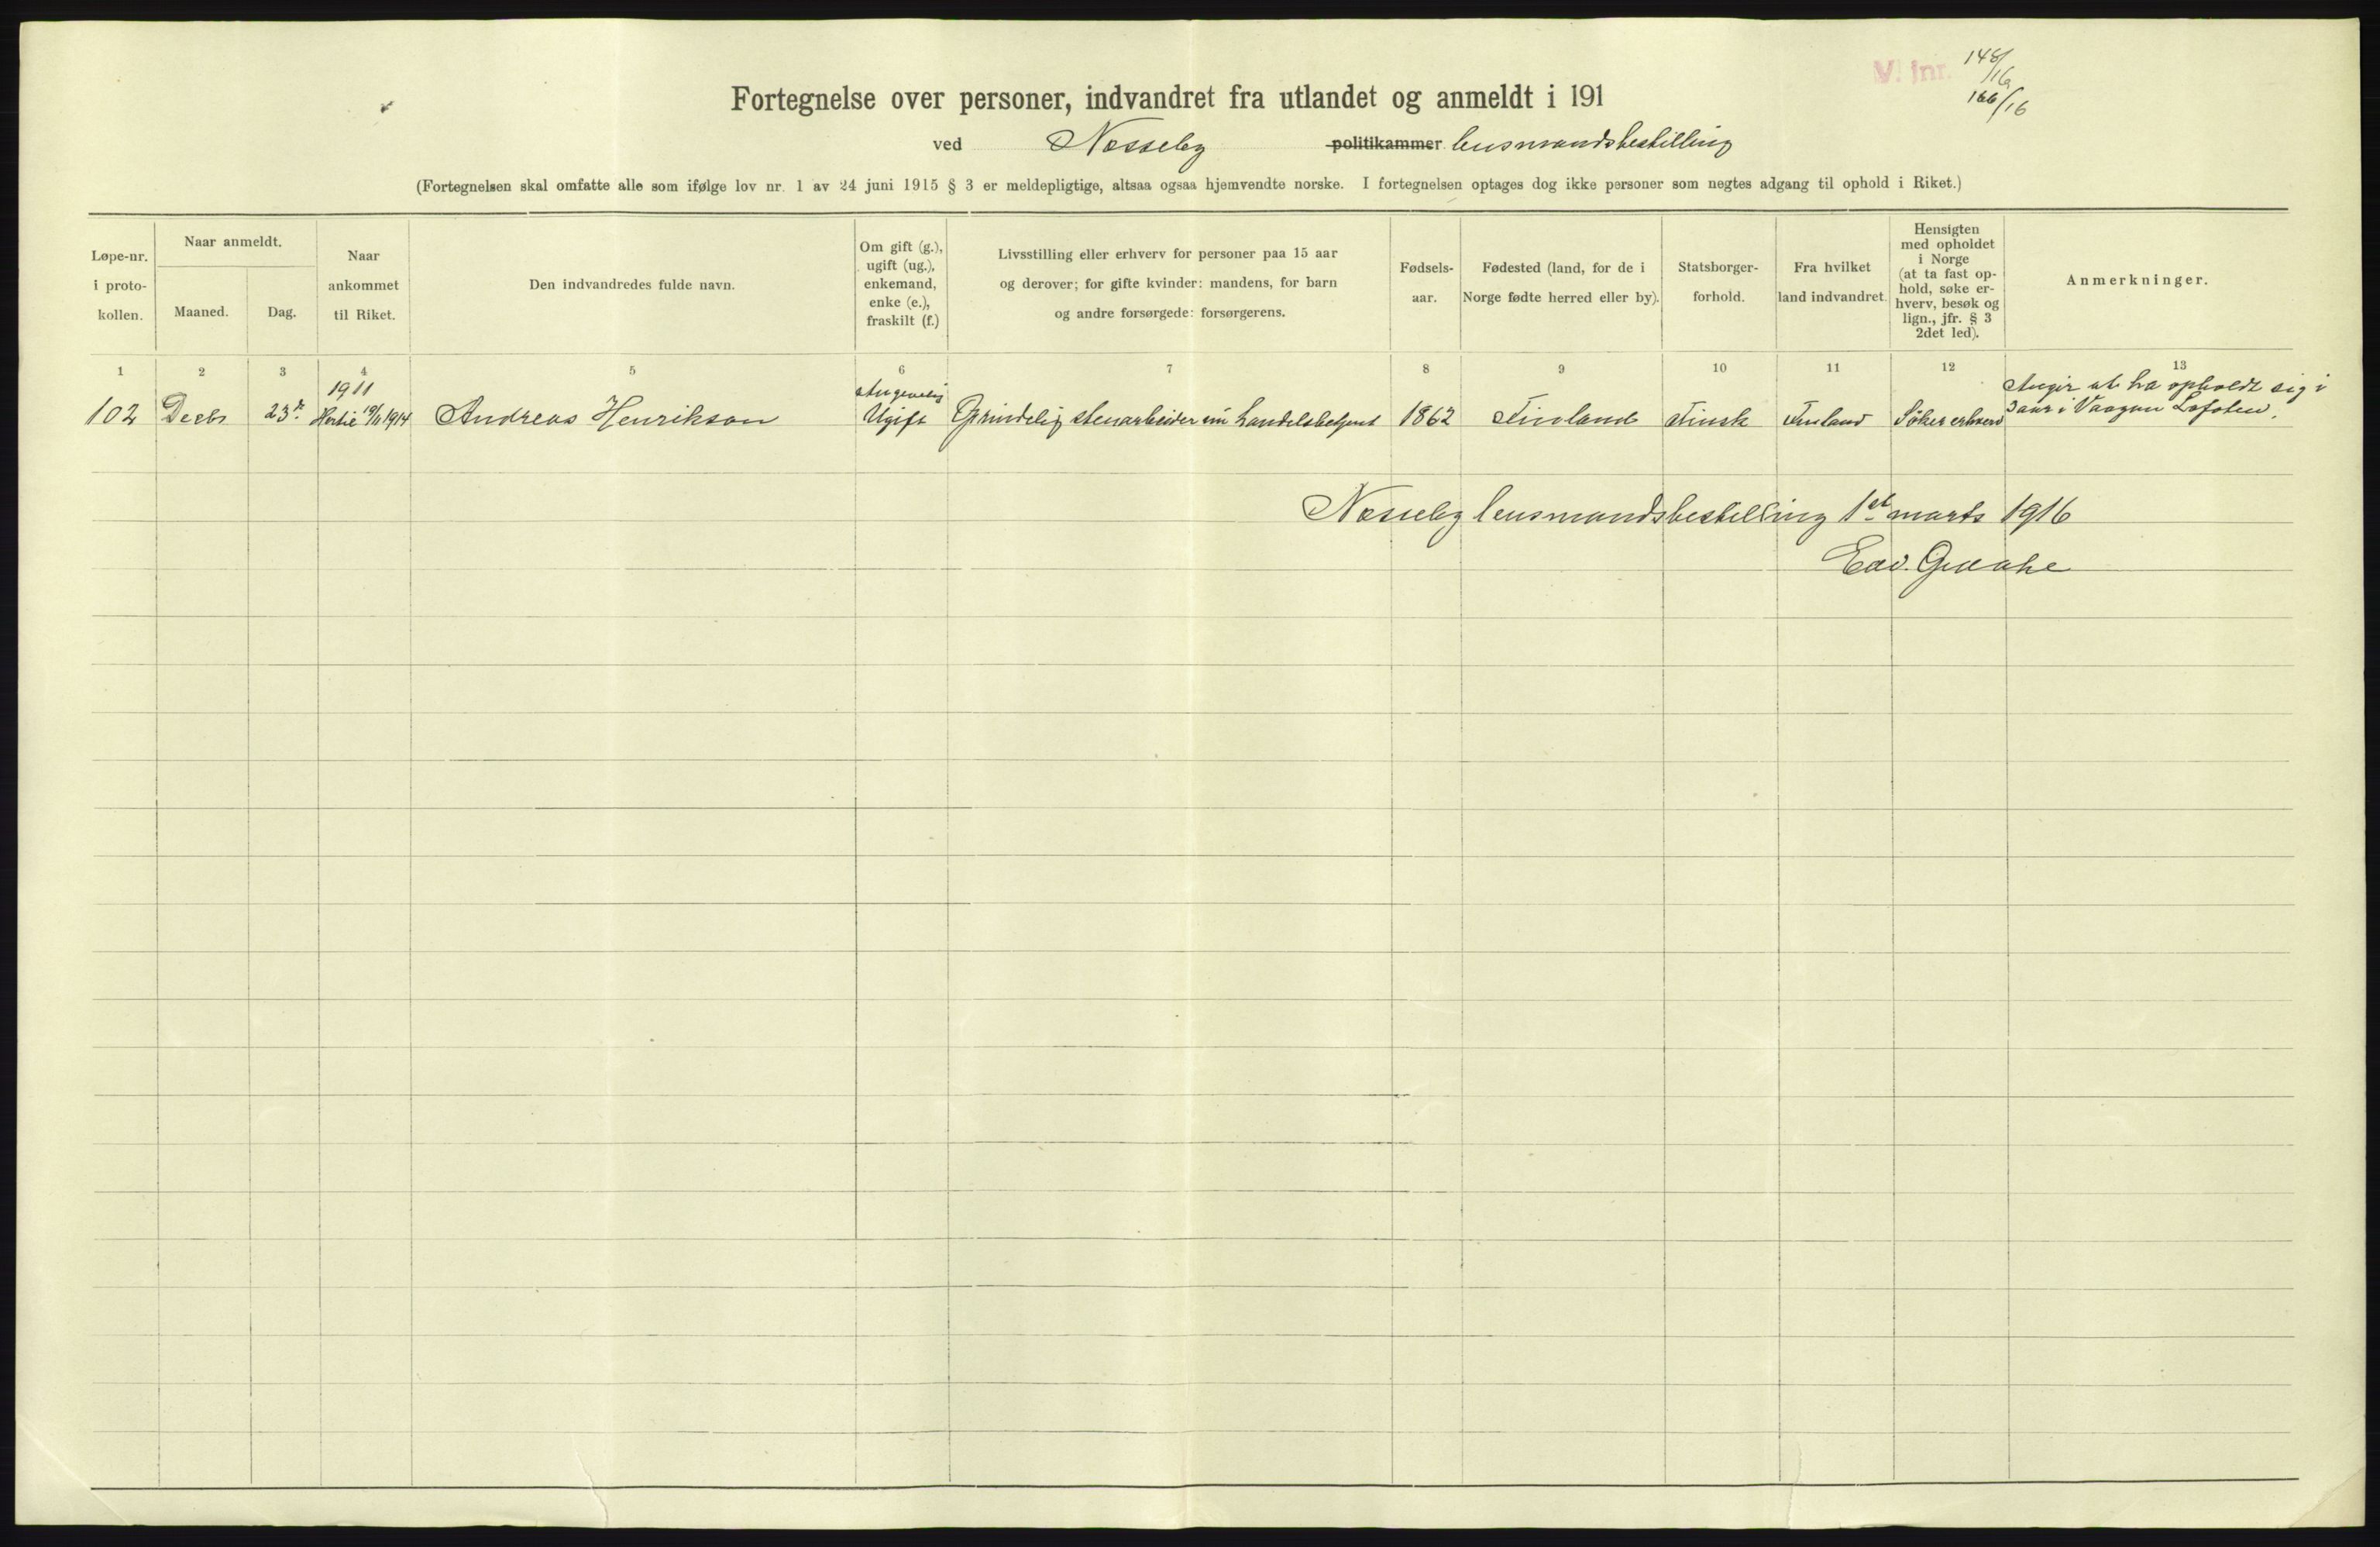 V. Jnr. 148/16
166/16
Fortegnelse over personer, indvandret fra utlandet og anmeldt i 191
ved Nesseby politikammer lensmandsbestilling
(Fortegnelsen skal omfatte alle som ifølge lov nr. 1 av 24 juni 1915 § 3 er meldepligtige, altsaa ogsaa hjemvendte norske. I fortegnelsen optages dog ikke personer som negtes adgang til ophold i Riket.)
Løpe-nr.
i proto-
kollen.
Naar anmeldt.
Maaned.
Dag.
Naar
ankommet
til Riket.
Den indvandredes fulde navn.
Om gift (g.),
ugift (ug.),
enkemand,
enke (e.),
fraskilt (f.)
Livsstilling eller erhverv for personer paa 15 aar
og derover; for gifte kvinder: mandens, for barn
og andre forsørgede: forsørgerens.
Fødsels-
aar.
Fødested (land, for de i
Norge fødte herred eller by).
Statsborger-
forhold.
Fra hvilket
land indvandret.
Hensigten
med opholdet
i Norge
(at ta fast op-
hold, søke er-
hverv, besøk og
lign., jfr. § 3
2det led).
Anmerkninger.
1 2 3 4 5 6 7 8 9 10 11 12 13
1911 Angivelig Angir at ha opholdt sig i
102 Decbr 23 1914 Andreas Henrikson Ugift Oprindelig stenarbeider nu handelsbetjent 1862 Finland Finsk Finland Søker erhverv 3 aar i Vaagan Lofoten.
Nesseby lensmandsbestilling 1st marts 1916
Edv.